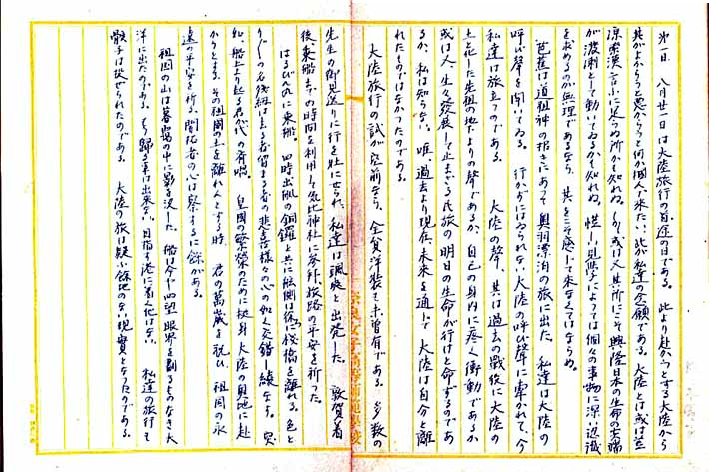 第一日、八月廿一日は大陸旅行の首途の日である。此より赴かうとする大陸から
其がよからうと悪からうと何か掴んで来たい、此が私達の念願である。大陸とは或は芒
漠索漠言ふに足らぬ所かも知れぬ。しかし或は又其所にこそ興隆日本の生命の尖端
が溌溂として動いてゐるかも知れぬ。慌しい見学によつては個々の事物に深い認識
を求めるのが無理であるなら、其をこそ感じて来なくてはならぬ。
芭蕉は道祖神の招きにあつて奥羽漂泊の旅に出た。私達は大陸の
呼び聲を聞いてゐる。行かずにはゐられない大陸の呼び聲に牽かれて、今
私達は旅立つのである。大陸の聲、其は過去の戦役に大陸の
土と化した先祖の地下よりの聲であるか、自己の身内に疼く衝動であるか
或は又、生々発展して止まざる民族の明日の生命が行けと命ずるのであ
るか、私は知らない。唯、過去より現在、未来を通じて大陸は自分と離
れたものではなかつたのである。
大陸旅行の試が空前なら、全員洋装も未曾有である。多数の
先生の御見送りに行を壮にせられ、私達は颯爽と出発した。敦賀着
後、乗船までの時間を利用して気比神社に参拝、旅路の平安を祈つた。
はるびん丸に乗船。四時出帆の銅鑼と共に船側は徐に桟橋を離れる。色と
りどりの名残紐は去る者留まる者の悲喜様々の心の如く交錯し縺れる。突
如、船上より起る君が代の斉唱。皇国の繁栄のために挺身大陸の奥地に赴
かうとする、その祖国の土を離れんとする時、君の萬歳を祝ひ祖国の永
遠の平安を祈る、開拓者の心は察するに餘がある。
祖国の山は暮靄の中に影を没した。船は今や四望眼界を劃るものなき大
洋に出たのである。もう歸る事は出来ない。目指す港に着く他はない。私達の旅行も
骰子は投ぜられたのである。大陸の旅は疑ふ餘地のない現實となつたのである。
奈良女子高等師範學校